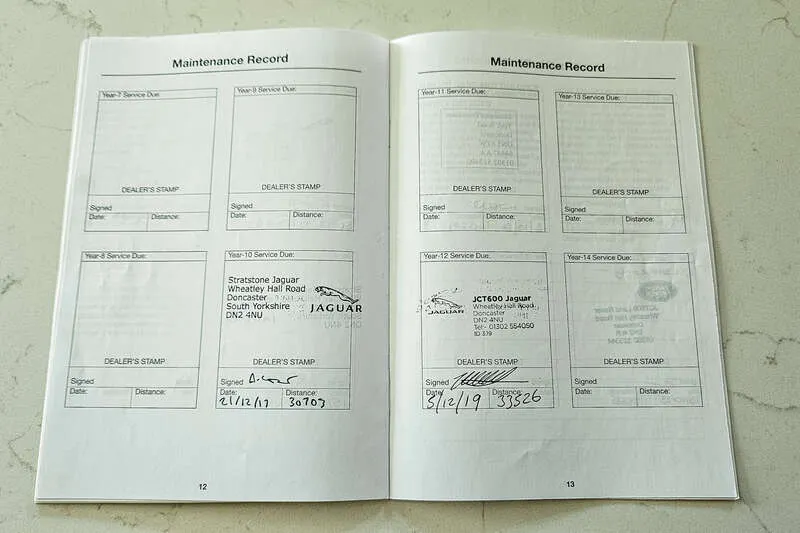 Maintenance Record
Year-7 Service Due:
DEALER'S STAMP
Signed
Date: Distance:
Year-9 Service Due:
DEALER'S STAMP
Signed
Date: Distance:
Year-8 Service Due:
DEALER'S STAMP
Signed
Date: Distance:
Year-10 Service Due:
Stratstone Jaguar
Wheatley Hall Road
Doncaster
South Yorkshire
DN2 4NU
JAGUAR
DEALER'S STAMP
Signed
Date: Distance:
21/12/17 30703
12
Maintenance Record
Year-11 Service Due:
DEALER'S STAMP
Signed
Date: Distance:
Year-13 Service Due:
DEALER'S STAMP
Signed
Date: Distance:
Year-12 Service Due:
JAGUAR
JCT600 Jaguar
Wheatley Hall Road
Doncaster
DN2 4NU
Tel:- 01302 554050
ID 379
DEALER'S STAMP
Signed
Date: Distance:
5/12/19 33526
Year-14 Service Due:
DEALER'S STAMP
Signed
Date: Distance:
13